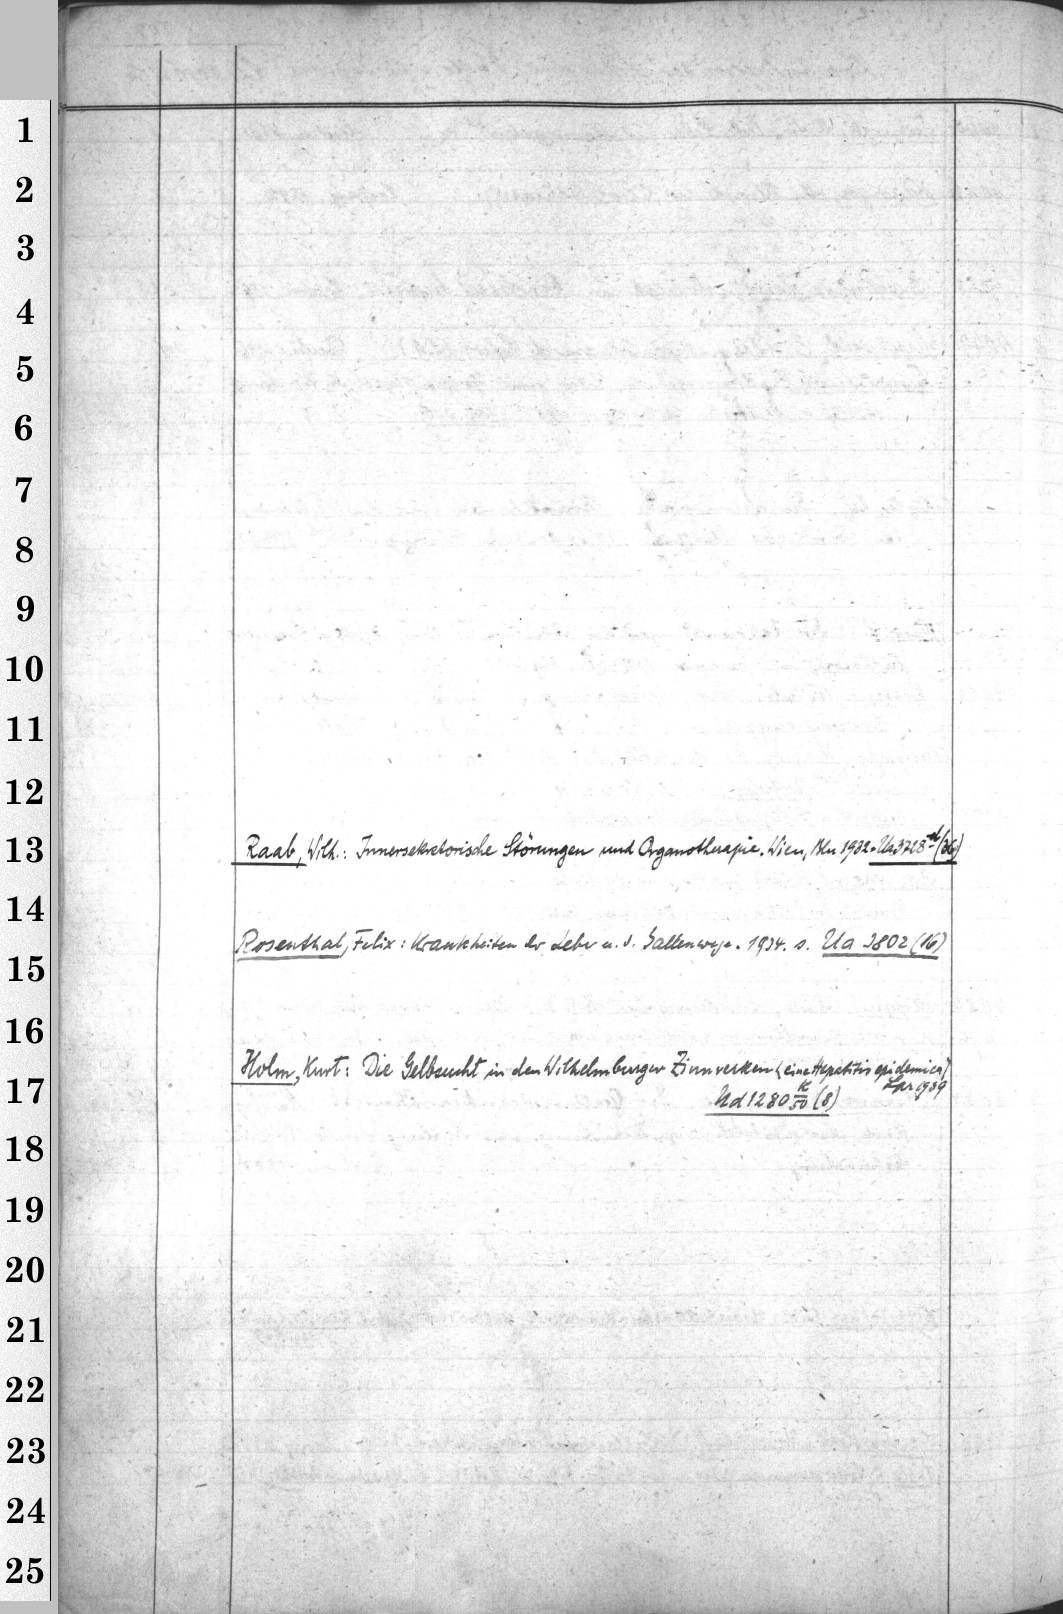 1
2
3
4
5
6
7
8
9
10
11
12
13
14
15
16
17
18
19
20
21
22
23
24
25
Raab, Wilh.: Innersekretorische Störungen und Organotherapie. Wien, Bln 1932. Ua 3728 d (36)
Rosenthal, Felix: Krankheiten der Leber u. d. Gallenwege. 1934. s. Ua 3802 (16)
Holm, Kurt: Die Gelbsucht in den Wilhelmburger Zinnwerken (eine Hepatitis epidemica)
Lpz 1939
Ud 1280 K/50 (8)